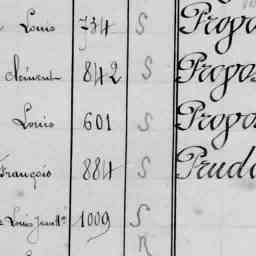 Louis 734 S Propo
Clément 842 S Propos
Louis 601 S Propos
François 884 S Prud
Louis 1009 S
R